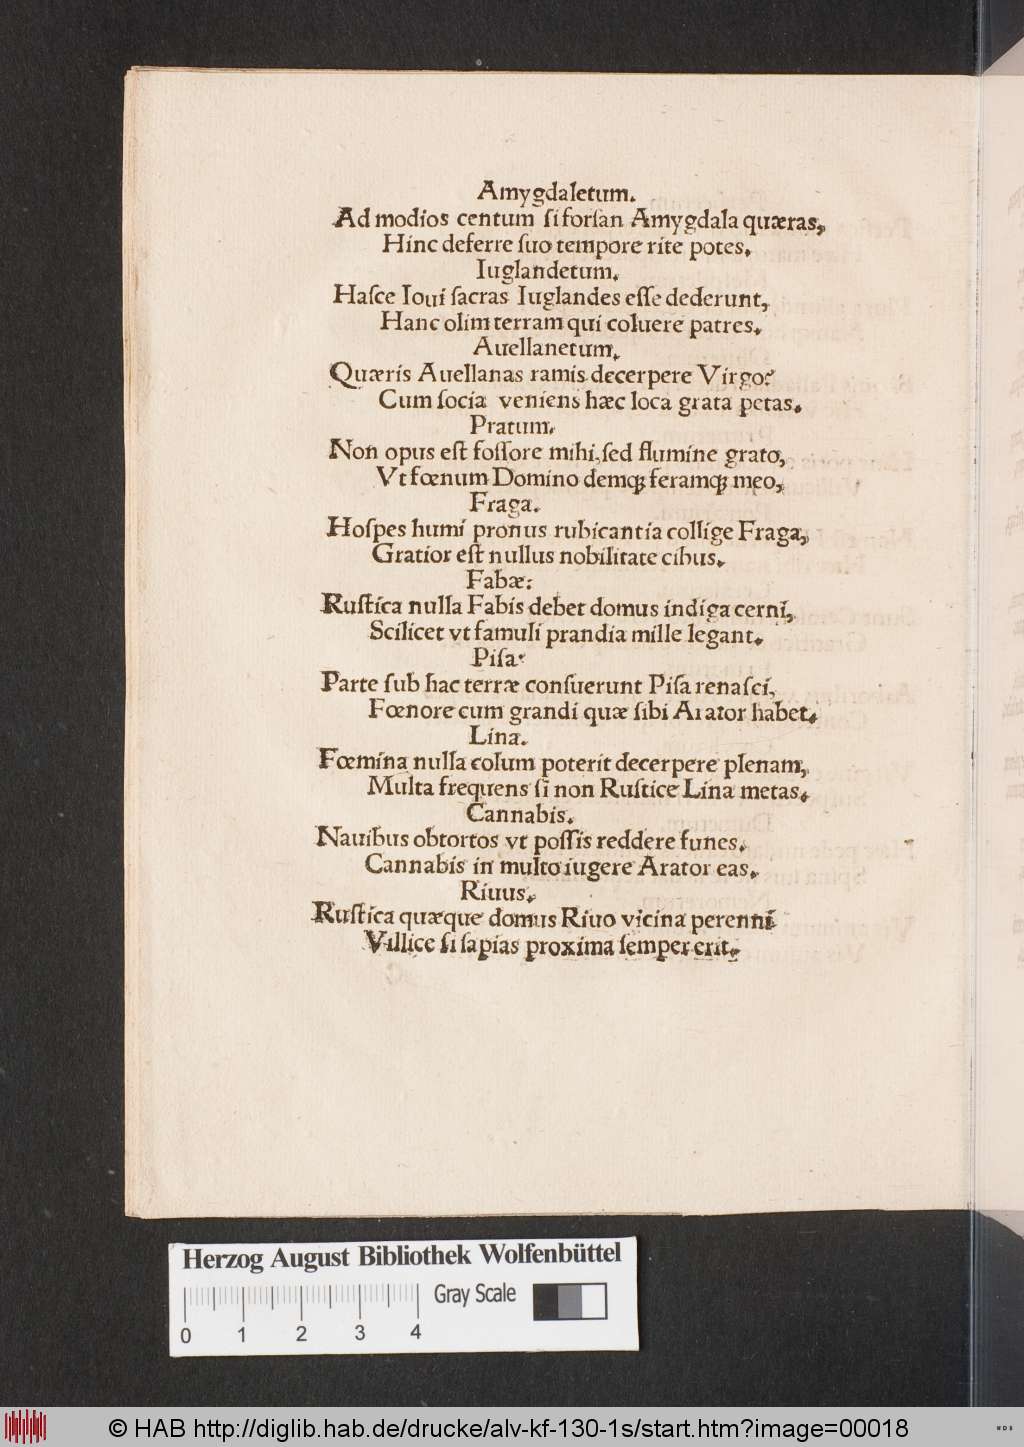 Amygdaletum.
Ad modios centum ſi forſan Amygdala quæras,
Hinc deferre ſuo tempore rite potes.
Iuglandetum.
Haſce Ioui ſacras Iuglandes eſſe dederunt,
Hanc olim terram qui coluere patres.
Auellanetum.
Quæris Auellanas ramis decerpere Virgo?
Cum ſocia veniens hæc loca grata petas.
Pratum.
Non opus eſt foſſore mihi, ſed flumine grato,
Vt fœnum Domino demqꝫ feramqꝫ meo,
Fraga.
Hoſpes humi pronus rubicantia collige Fraga,
Gratior eſt nullus nobilitate cibus.
Fabæ:
Ruſtica nulla Fabis debet domus indiga cerni,
Scilicet vt famuli prandia mille legant.
Piſa:
Parte ſub hac terræ conſuerunt Piſa renaſci,
Fœnore cum grandi quæ ſibi Arator habet.
Lina.
Fœmina nulla colum poterit decerpere plenam,
Multa frequens ſi non Ruſtice Lina metas.
Cannabis.
Nauibus obtortos vt poſſis reddere funes.
Cannabis in multo iugere Arator eas.
Riuus.
Ruſtica quæque domus Riuo vicina perenni
Villice ſi ſapias proxima ſemper erit.
Herzog August Bibliothek Wolfenbüttel
Gray Scale
0 1 2 3 4
© HAB http://diglib.hab.de/drucke/alv-kf-130-1s/start.htm?image=00018